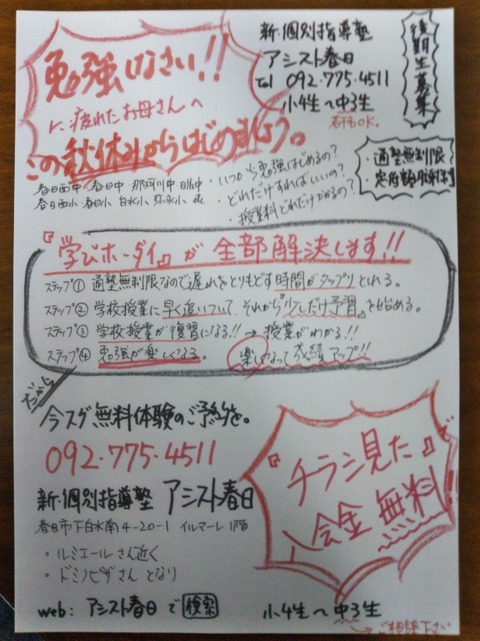 勉強しなさい!!
に疲れたお母さんへ
この秋休みからはじめましょう。
新・個別指導塾
アシスト春日
Tel 092-775-4511
小4生〜中3生
若干名OK。
後期生募集
通塾無制限
春日西中 春日中 那珂川中
春日西小 春日小 白水小 弥永小
・いつから勉強はじめるの?
・どれだけすればいいの?
・授業料どれだけかかるの?
『学びホーダイ』が全部解決します!!
ステップ① 通塾無制限なので遅れをとりもどす時間がタップリとれる。
ステップ② 学校授業に早く追いついて、それから『少しだけ予習』を始める。
ステップ③ 学校授業が復習になる!! → 授業がわかる!!
ステップ④ 勉強が楽しくなる。 楽しくなって成績アップ!!
だから
今スグ無料体験のご予約を。
092-775-4511
新・個別指導塾 アシスト春日
春日市下白水南4-20-1 イルマーレ1階
・ルミエールさん近く
・ドミノピザさんとなり
web: アシスト春日で検索
『チラシ見た』で
入会金無料
小4生〜中3生
ご相談下さい